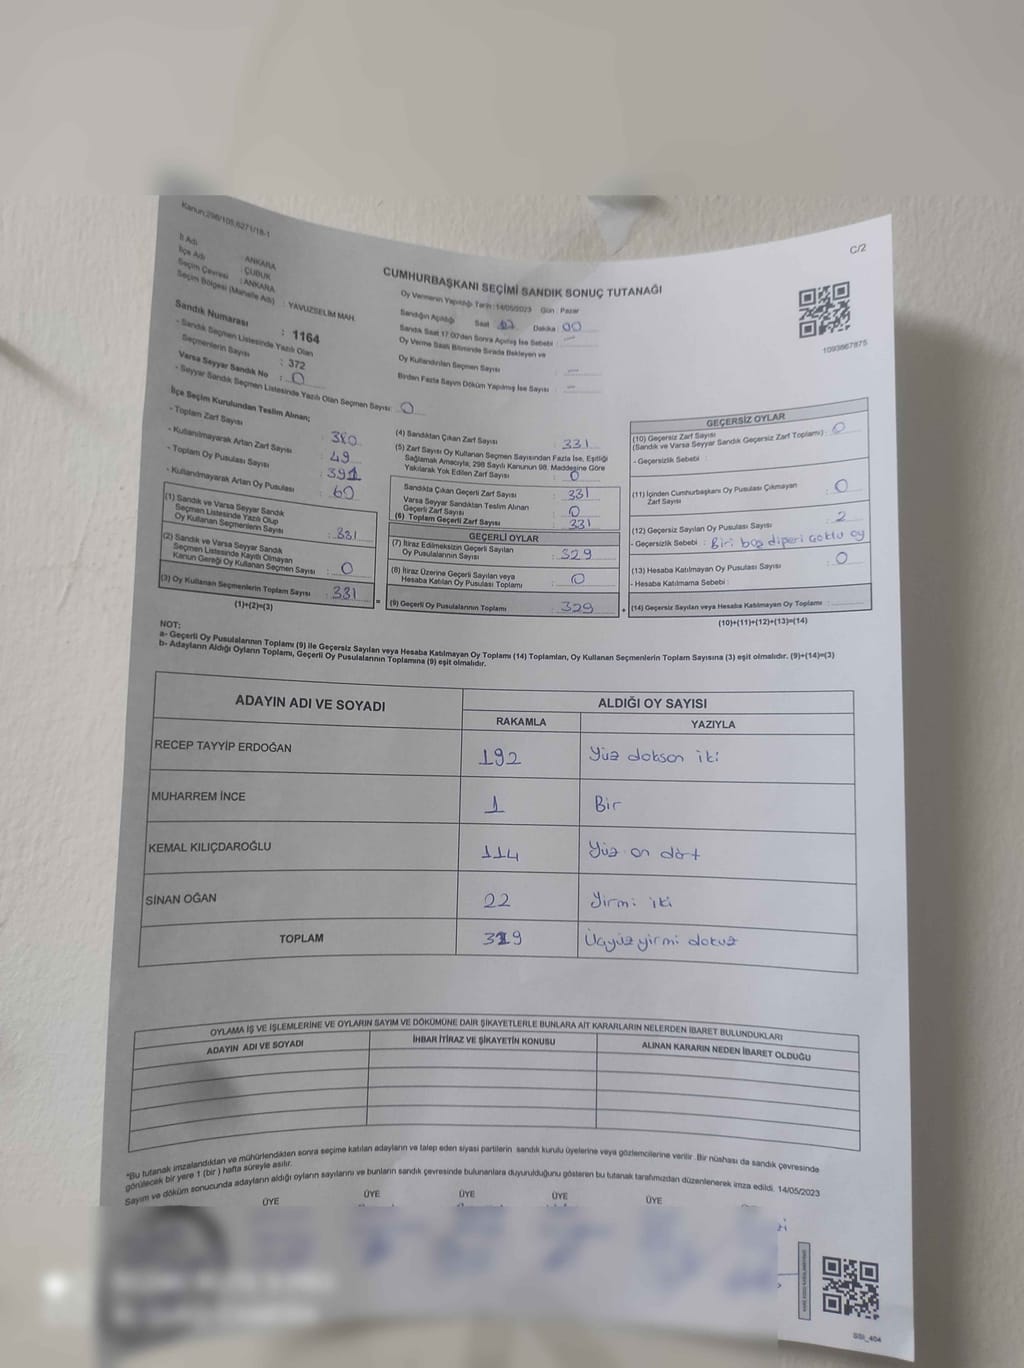 Kanun:298/105,6271/18-1
C/2
İl Adı : ANKARA
İlçe Adı : ÇUBUK
Seçim Çevresi : ANKARA
Seçim Bölgesi (Mahalle Adı) : YAVUZSELİM MAH.
Sandık Numarası : 1164
- Sandık Seçmen Listesinde Yazılı Olan
Seçmenlerin Sayısı : 372
Varsa Seyyar Sandık No : 0
- Seyyar Sandık Seçmen Listesinde Yazılı Olan Seçmen Sayısı : 0
CUMHURBAŞKANI SEÇİMİ SANDIK SONUÇ TUTANAĞI
Oy Vermenin Yapıldığı Tarih : 14/05/2023 Gün : Pazar
Sandığın Açıldığı Saat : 17 Dakika : 00
Sandık Saat 17.00'den Sonra Açılmış İse Sebebi : —
Oy Verme Saati Bitiminde Sırada Bekleyen ve
Oy Kullandırılan Seçmen Sayısı : —
Birden Fazla Sayım Döküm Yapılmış İse Sayısı : —
1093667875
İlçe Seçim Kurulundan Teslim Alınan;
- Toplam Zarf Sayısı : 380
- Kullanılmayarak Artan Zarf Sayısı : 49
- Toplam Oy Pusulası Sayısı : 391
- Kullanılmayarak Artan Oy Pusulası : 60
(1) Sandık ve Varsa Seyyar Sandık
Seçmen Listesinde Yazılı Olup
Oy Kullanan Seçmenlerin Sayısı : 331
(2) Sandık ve Varsa Seyyar Sandık
Seçmen Listesinde Kayıtlı Olmayan
Kanun Gereği Oy Kullanan Seçmen Sayısı : 0
(3) Oy Kullanan Seçmenlerin Toplam Sayısı : 331
(1)+(2)=(3)
(4) Sandıktan Çıkan Zarf Sayısı : 331
(5) Zarf Sayısı Oy Kullanan Seçmen Sayısından Fazla İse, Eşitliği
Sağlamak Amacıyla; 298 Sayılı Kanunun 98. Maddesine Göre
Yakılarak Yok Edilen Zarf Sayısı : 0
Sandıkta Çıkan Geçerli Zarf Sayısı : 331
Varsa Seyyar Sandıktan Teslim Alınan
Geçerli Zarf Sayısı : 0
(6) Toplam Geçerli Zarf Sayısı : 331
GEÇERLİ OYLAR
(7) İtiraz Edilmeksizin Geçerli Sayılan
Oy Pusulalarının Sayısı : 329
(8) İtiraz Üzerine Geçerli Sayılan veya
Hesaba Katılan Oy Pusulası Toplamı : 0
(9) Geçerli Oy Pusulalarının Toplamı : 329
GEÇERSİZ OYLAR
(10) Geçersiz Zarf Sayısı
(Sandık ve Varsa Seyyar Sandık Geçersiz Zarf Toplamı) : 0
- Geçersizlik Sebebi :
(11) İçinden Cumhurbaşkanı Oy Pusulası Çıkmayan
Zarf Sayısı : 0
(12) Geçersiz Sayılan Oy Pusulası Sayısı : 2
- Geçersizlik Sebebi : Biri boş diperi çoklu oy
(13) Hesaba Katılmayan Oy Pusulası Sayısı : 0
- Hesaba Katılmama Sebebi :
(14) Geçersiz Sayılan veya Hesaba Katılmayan Oy Toplamı :
(10)+(11)+(12)+(13)=(14)
NOT:
a- Geçerli Oy Pusulalarının Toplamı (9) ile Geçersiz Sayılan veya Hesaba Katılmayan Oy Toplamı (14) Toplamları, Oy Kullanan Seçmenlerin Toplam Sayısına (3) eşit olmalıdır. (9)+(14)=(3)
b- Adayların Aldığı Oyların Toplamı, Geçerli Oy Pusulalarının Toplamına (9) eşit olmalıdır.
ADAYIN ADI VE SOYADI ALDIĞI OY SAYISI
RAKAMLA YAZIYLA
RECEP TAYYİP ERDOĞAN 192 Yüz doksan iki
MUHARREM İNCE 1 Bir
KEMAL KILIÇDAROĞLU 114 Yüz on dört
SİNAN OĞAN 22 Yirmi iki
TOPLAM 329 Üçyüz yirmi dokuz
OYLAMA İŞ VE İŞLEMLERİNE VE OYLARIN SAYIM VE DÖKÜMÜNE DAİR ŞİKAYETLERLE BUNLARA AİT KARARLARIN NELERDEN İBARET BULUNDUKLARI
ADAYIN ADI VE SOYADI İHBAR İTİRAZ VE ŞİKAYETİN KONUSU ALINAN KARARIN NEDEN İBARET OLDUĞU
"Bu tutanak imzalandıktan ve mühürlendikten sonra seçime katılan adayların ve talep eden siyasi partilerin sandık kurulu üyelerine veya gözlemcilerine verilir. Bir nüshası da sandık çevresinde
görülecek bir yere 1 (bir) hafta süreyle asılır.
Sayım ve döküm sonucunda adayların aldığı oyların sayılarını ve bunların sandık çevresinde bulunanlara duyurulduğunu gösteren bu tutanak tarafımızdan düzenlenerek imza edildi. 14/05/2023
ÜYE ÜYE ÜYE ÜYE ÜYE
SSI_404